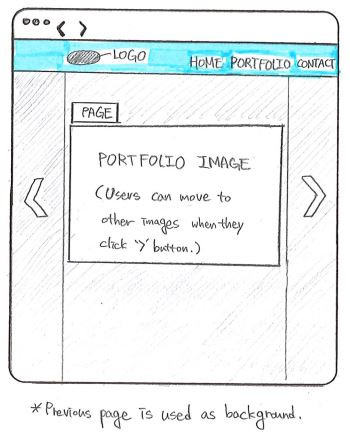 LOGO
HOME PORTFOLIO CONTACT
PAGE
PORTFOLIO IMAGE
(Users can move to
other images when they
click '>' button.)
*Previous page is used as background.